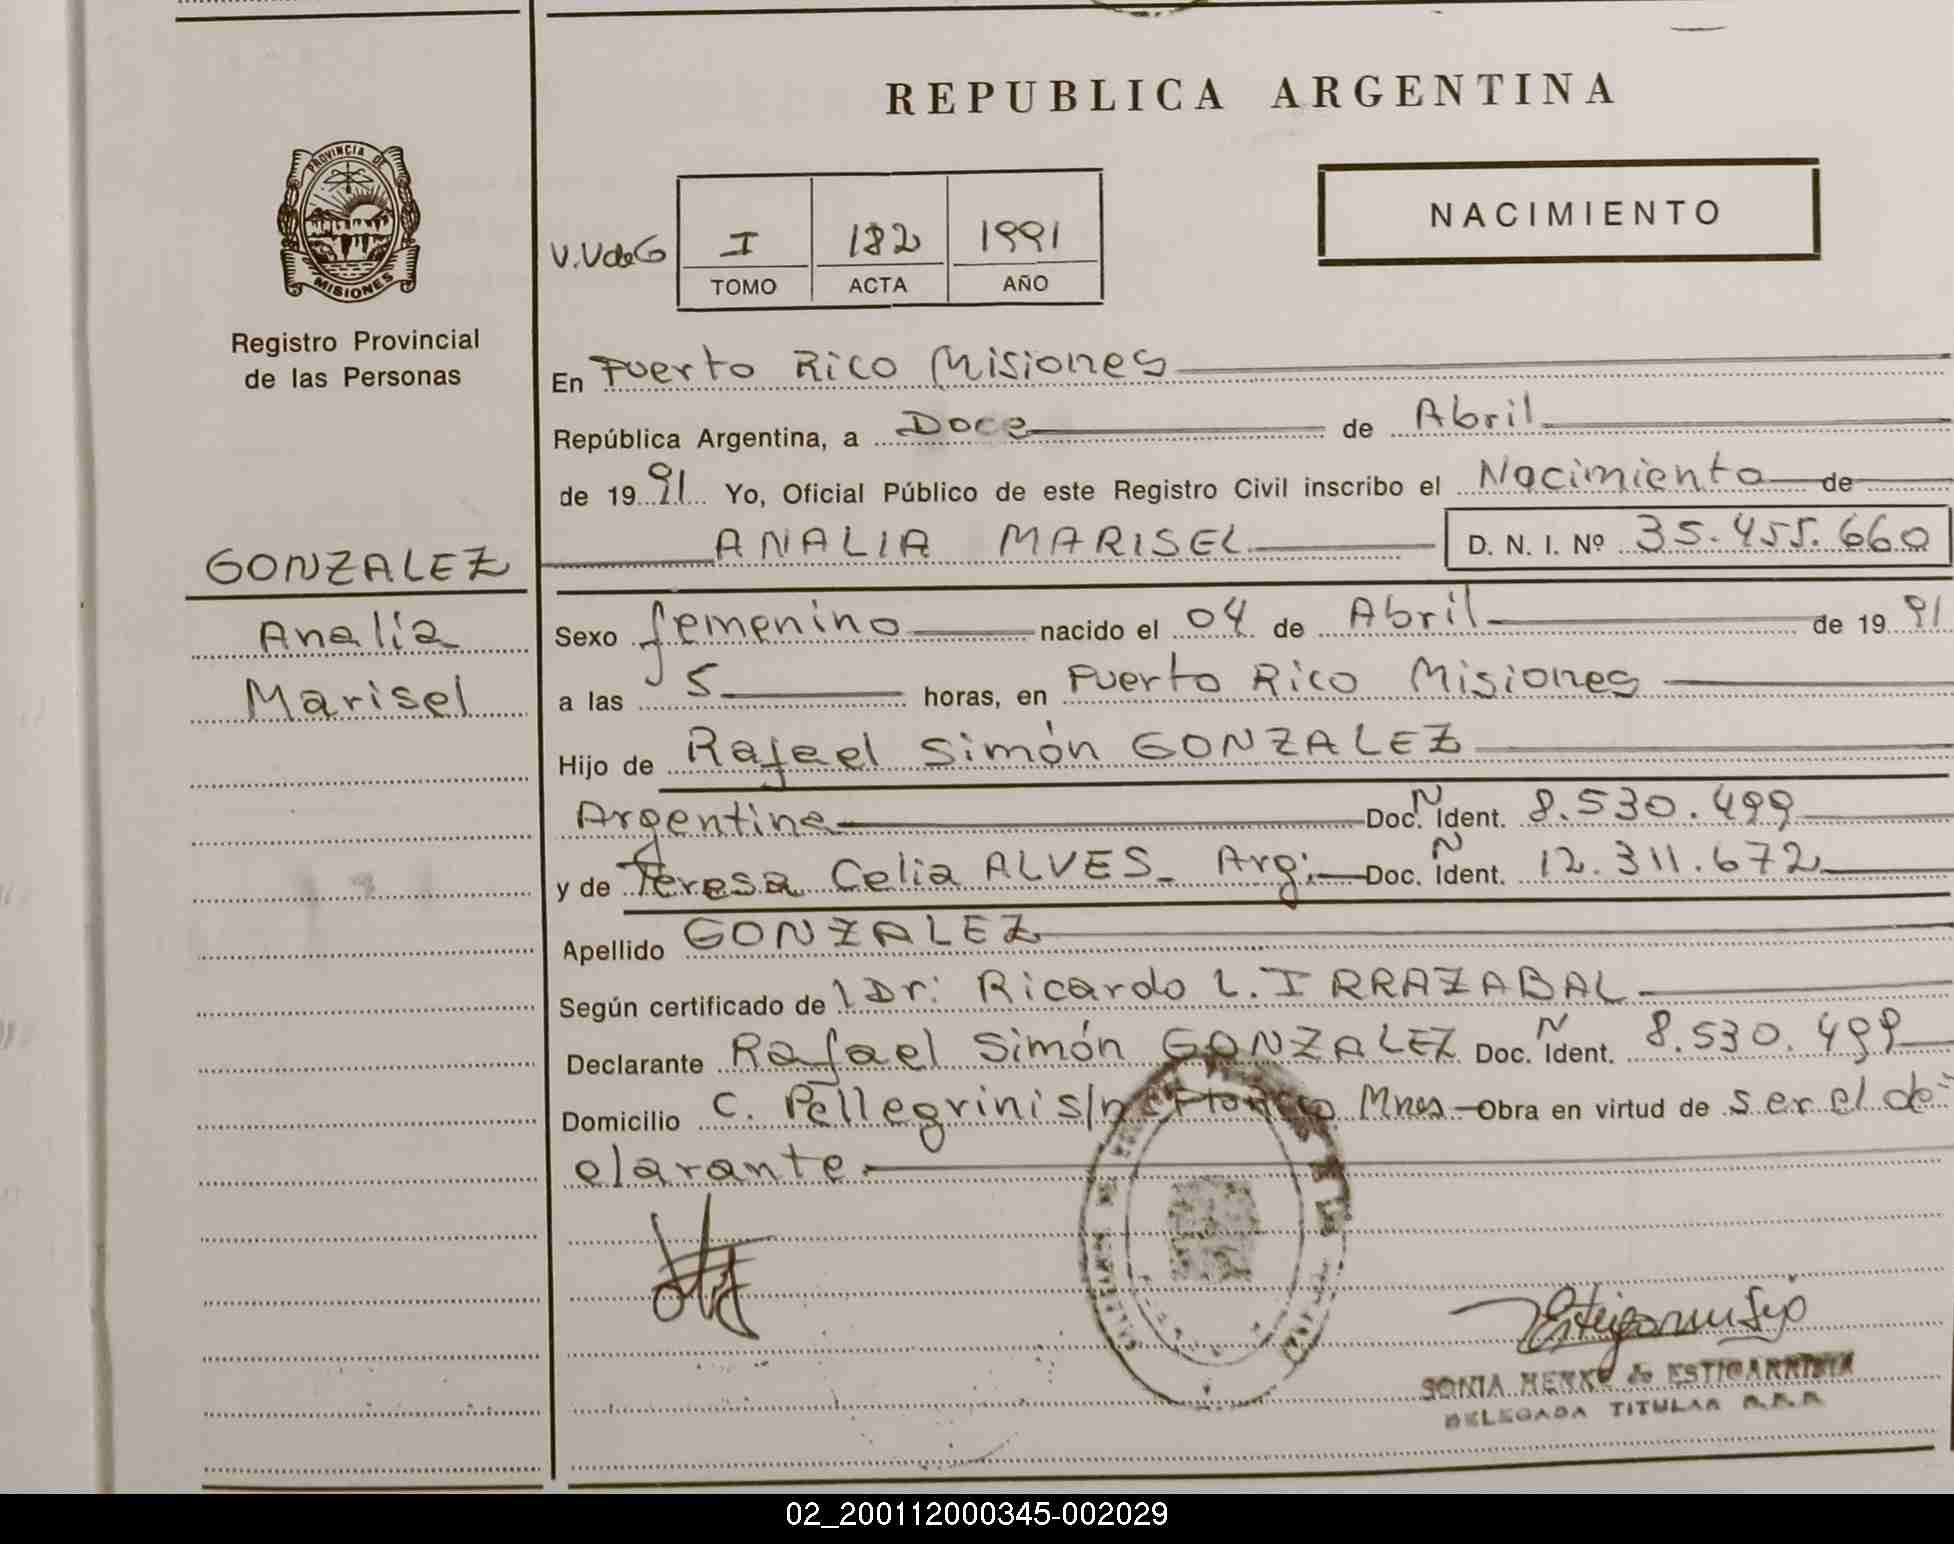 REPUBLICA ARGENTINA
PROVINCIA DE
MISIONES
Registro Provincial
de las Personas
NACIMIENTO
V.VdeG I 182 1991
TOMO ACTA AÑO
En Puerto Rico Misiones
República Argentina, a Doce de Abril
de 1991 Yo, Oficial Público de este Registro Civil inscribo el Nacimiento de
ANALIA MARISEL D. N. I. Nº 35.455.660
GONZALEZ
Analía
Marisel
Sexo femenino nacido el 04 de Abril de 1991
a las 5 horas, en Puerto Rico Misiones
Hijo de Rafael Simón GONZALEZ
Argentina Doc. N Ident. 8.530.499
y de Teresa Celia ALVES_ Arg: Doc. N Ident. 12.311.672
Apellido GONZALEZ
Según certificado de Dr: Ricardo L. IRRAZABAL
Declarante Rafael Simón GONZALEZ Doc. N Ident. 8.530.499
Domicilio C. Pellegrini s/n Mnes Obra en virtud de ser el de
clarante
SONIA DE ESTIGARRIBIA
DELEGADA TITULAR
02_200112000345-002029